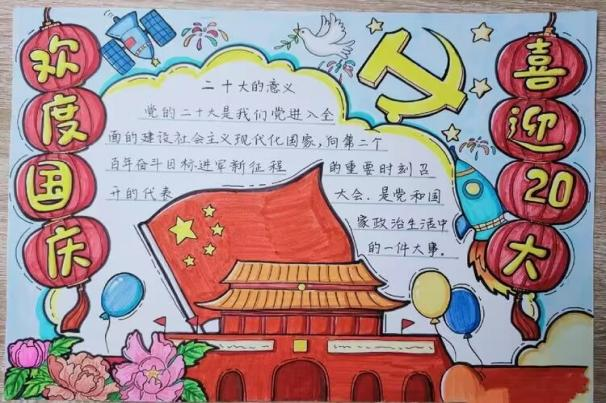 欢度国庆
喜迎20大
二十大的意义
党的二十大是我们党进入全
面的建设社会主义现代化国家,向第二个
百年奋斗目标进军新征程 的重要时刻召
开的代表 大会.是党和国
家政治生活中
的一件大事.